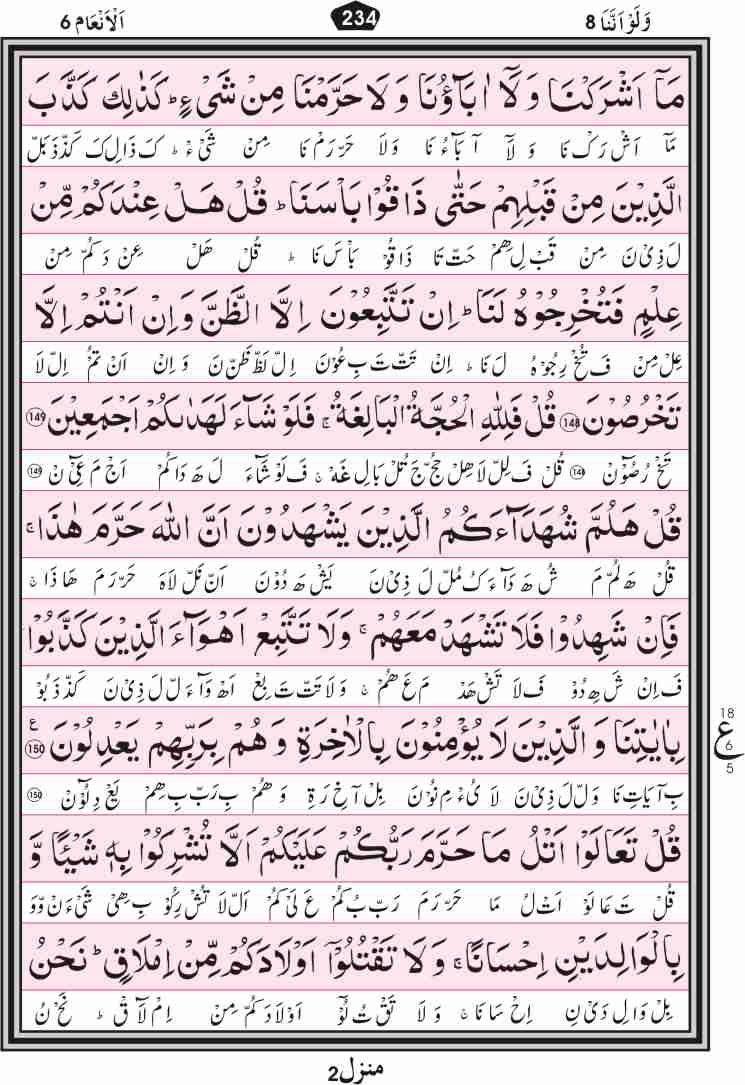 وَلَوْ اَنَّنَا 8 234 اَلْاَنْعَام 6
مَاۤ اَشْرَكْنَا وَ لَاۤ اٰبَآؤُنَا وَ لَا حَرَّمْنَا مِنْ شَیْءٍ ؕ كَذٰلِكَ كَذَّبَ
مَاۤ اَشْ رَكْ نَا وَ لَاۤ آ بَآءُ نَا وَ لَا حَرْ رَمْ نَا مِنْ شَیْءْ ؕ كَ ذَالِ كَ كَذْ ذَ بَلْ
الَّذِیْنَ مِنْ قَبْلِهِمْ حَتّٰی ذَاقُوْا بَاْسَنَا ؕ قُلْ هَلْ عِنْدَكُمْ مِّنْ
لَ ذِیْ نَ مِنْ قَبْ لِ هِمْ حَتْ تَا ذَا قُوْ بَاْ سَ نَا ؕ قُلْ هَلْ عِنْ دَ كُمْ مِنْ
عِلْمٍ فَتُخْرِجُوْهُ لَنَا ؕ اِنْ تَتَّبِعُوْنَ اِلَّا الظَّنَّ وَ اِنْ اَنْتُمْ اِلَّا
عِلْ مِنْ فَ تُخْ رِجُوْ هُ لَ نَا ؕ اِنْ تَتْ تَ بِ عُوْنَ اِلْ لَظْ ظَنْ نَ وَ اِنْ اَنْ تُمْ اِلْ لَا
تَخْرُصُوْنَ 148 قُلْ فَلِلّٰهِ الْحُجَّةُ الْبَالِغَةُ ۚ فَلَوْ شَآءَ لَهَدٰىكُمْ اَجْمَعِیْنَ 149
تَخْ رُصُوْنْ 148 قُلْ فَ لِلْ لَا هِلْ حُجْ جَ تُلْ بَالِ غَهْ ۚ فَ لَوْ شَآءَ لَ هَ دَاكُمْ اَجْ مَ عِیْ نْ 149
قُلْ هَلُمَّ شُهَدَآءَكُمُ الَّذِیْنَ یَشْهَدُوْنَ اَنَّ اللّٰهَ حَرَّمَ هٰذَا ۚ
قُلْ هَ لُمْ مَ شُ هَ دَآءَ كُ مُلْ لَ ذِیْ نَ یَشْ هَ دُوْنَ اَنْ نَلْ لَاهَ حَرْ رَ مَ هَا ذَا ۚ
فَاِنْ شَهِدُوْا فَلَا تَشْهَدْ مَعَهُمْ ۚ وَلَا تَتَّبِعْ اَهْوَآءَ الَّذِیْنَ كَذَّبُوْا
فَ اِنْ شَ هِ دُوْ فَ لَا تَشْ هَدْ مَ عَ هُمْ ۚ وَ لَا تَتْ تَ بِعْ اَهْ وَآءَ لْ لَ ذِیْ نَ كَذْ ذَ بُوْ
بِاٰیٰتِنَا وَ الَّذِیْنَ لَا یُؤْمِنُوْنَ بِالْاٰخِرَةِ وَ هُمْ بِرَبِّهِمْ یَعْدِلُوْنَ 150 ع
بِ آیَاتِ نَا وَلْ لَ ذِیْ نَ لَا یُءْ مِ نُوْنَ بِلْ آخِ رَةِ وَ هُمْ بِ رَبْ بِ هِمْ یَعْ دِ لُوْنْ 150
18
ع
6
5
قُلْ تَعَالَوْا اَتْلُ مَا حَرَّمَ رَبُّكُمْ عَلَیْكُمْ اَلَّا تُشْرِكُوْا بِهٖ شَیْـًٔا وَّ
قُلْ تَ عَا لَوْ اَتْ لُ مَا حَرْ رَمَ رَبْ بُ كُمْ عَ لَیْ كُمْ اَلْ لَا تُشْ رِ كُوْ بِ هِیْ شَیْءَنْ وَوَ
بِالْوَالِدَیْنِ اِحْسَانًا ۚ وَ لَا تَقْتُلُوْۤا اَوْلَادَكُمْ مِّنْ اِمْلَاقٍ ؕ نَحْنُ
بِلْ وَالِ دَیْ نِ اِحْ سَانَا ۚ وَ لَا تَقْ تُ لُوْۤ اَوْ لَادَ كُمْ مِنْ اِمْ لَا قْ ؕ نَحْ نُ
منزل 2